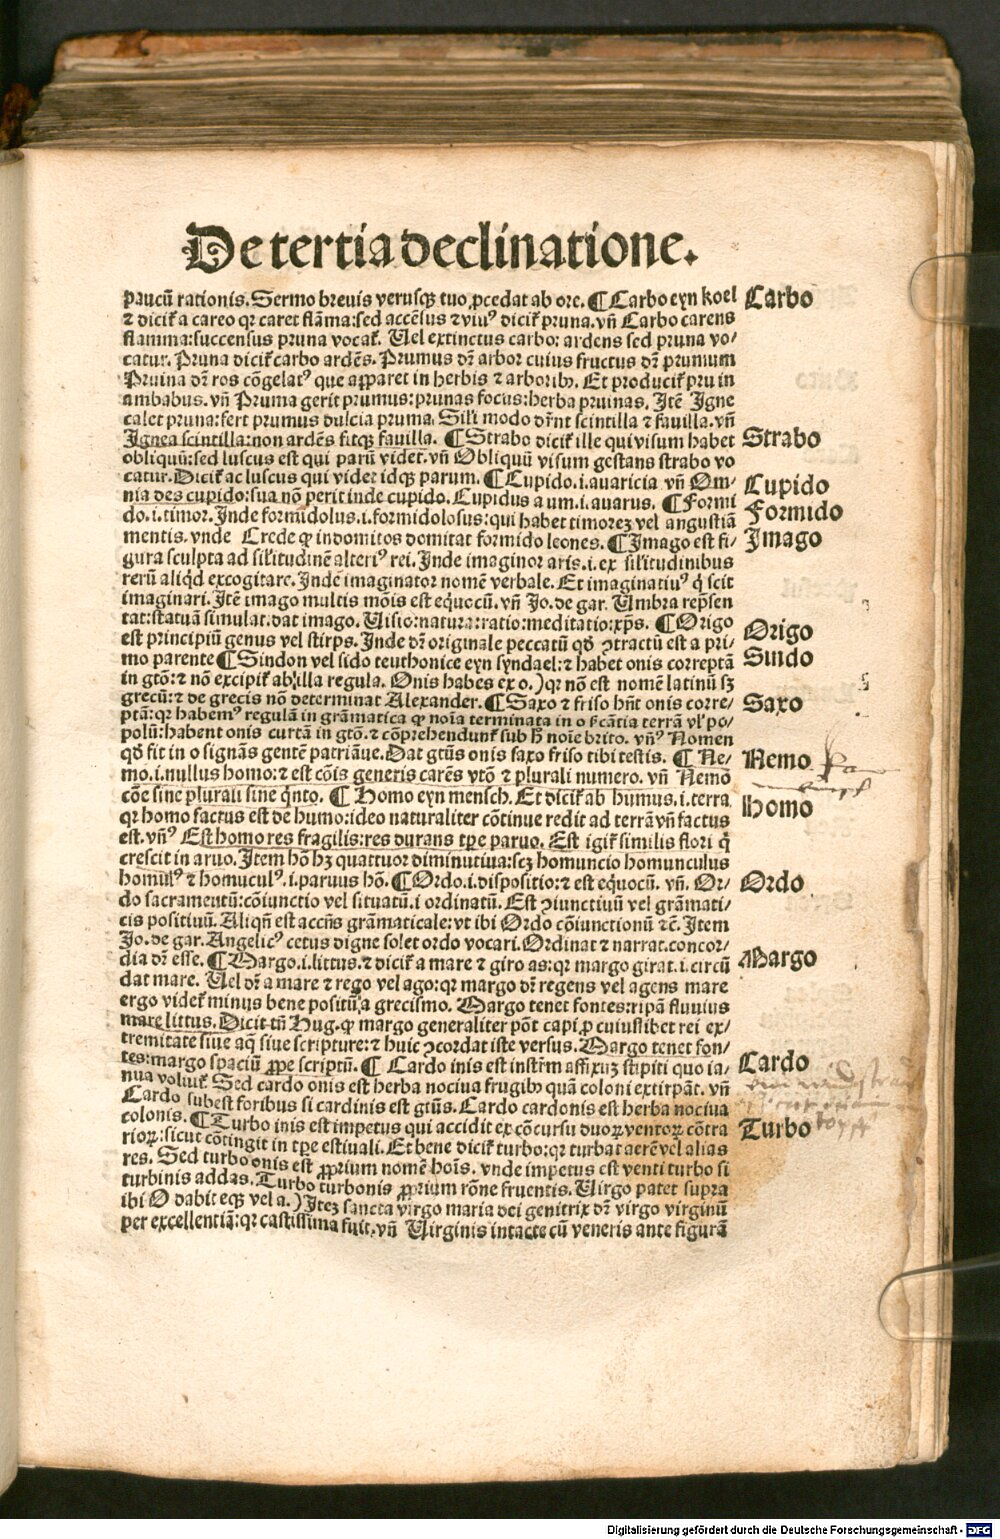 De tertia declinatione.
paucū rationis. Sermo brevis verusqꝫ tuo ꝓcedat ab ore. ¶ Carbo eyn koel
Carbo
⁊ dicit̄ a careo qꝛ caret flāma: sed accēsus ⁊ viuꝰ dicit̄ pruna. vn̄ Carbo carens
flamma: succensus pruna vocat̄. Uel extinctus carbo: ardens sed pruna vo⸗
catur. Pruna dicit̄ carbo ardēs. Prumus dr̄ arbor cuius fructus dr̄ prumum
Pruina dr̄ ros cōgelatꝰ que apparet in herbis ⁊ arboribꝫ. Et producit̄ pru in
ambabus. vn̄ Pruma gerit prumus: prunas focus: herba pruinas. Itē Igne
calet pruna: fert prumus dulcia pruma. Sil'i modo dr̄nt scintilla ⁊ fauilla. vn̄
Ignea scintilla: non ardēs fitqꝫ fauilla. ¶ Strabo dicit̄ ille qui visum habet
Strabo
obliquū: sed luscus est qui parū videt. vn̄ Obliquū visum gestans strabo vo
catur. Dicit̄ ac luscus qui videt idqꝫ parum. ¶ Cupido .i. avaricia vn̄ Om⸗
Cupido
nia des cupido: sua nō perit inde cupido. Cupidus a um .i. avarus. ¶ Formi
Formido
do .i. timor. Inde formidolus .i. formidolosus: qui habet timoreꝫ vel angustiā
mentis. vnde Crede ꝙ indomitos domitat formido leones. ¶ Imago est fi⸗
Imago
gura sculpta ad sil'itudinē alteriꝰ rei. Inde imaginor aris .i. ex sil'itudinibus
rerū aliqd excogitare. Inde imaginator nomē verbale. Et imaginatiuꝰ q̄ scit
imaginari. Itē imago multis mōis est equocū. vn̄ Jo. de gar. Umbra rep̄sen
tat: statuā simulat: dat imago. Uisio: natura: ratio: meditatio: xp̄s. ¶ Origo
Origo
est principiū genus vel stirps. Inde dr̄ originale peccatū qd̄ ꝯtractū est a pri⸗
mo parente ¶ Sindon vel sido teuthonice eyn syndael: ⁊ habet onis correptā
Sindo
in gtō: ⁊ nō excipit̄ ab illa regula. Onis habes ex o.) qꝛ nō est nomē latinū sꝫ
grecū: ⁊ de grecis nō determinat Alexander. ¶ Saxo ⁊ friso hn̄t onis corre⸗
Saxo
ptā: qꝛ habemꝰ regulā in grāmatica ꝙ noīa terminata in o sc̄atia terrā vl' po⸗
polū: habent onis curtā in gtō. ⁊ cōprehendunt̄ sub h̄ noīe brito. vn̄ꝰ Nomen
qd̄ fit in o signās gentē patriāque. Dat gtūs onis saxo friso tibi testis. ¶ Ne⸗
Nemo
mo .i. nullus homo: ⁊ est cōis generis carēs vtō ⁊ plurali numero. vn̄ Nemo
cōe sine plurali sine qnto. ¶ Homo eyn mensch. Et dicit̄ ab humus .i. terra
Homo
qꝛ homo factus est de humo: ideo naturaliter cōtinue redit ad terrā vn̄ factus
est. vn̄ꝰ Est homo res fragilis: res durans tp̄e paruo. Est igit̄ similis flori q̄
crescit in aruo. Item hō hꝫ quattuor diminutiva: scꝫ homuncio homunculus
homūl'ꝰ ⁊ homuculꝰ .i. parvus hō. ¶ Ordo .i. dispositio: ⁊ est equocū. vn̄. Or⸗
Ordo
do sacramentū: cōiunctio vel situatū .i. ordinatū. Est ꝯiunctivū vel grāmati⸗
cis positivū. Aliqn̄ est accn̄s grāmaticale: vt ibi Ordo cōiunctionū ⁊c̄. Item
Jo. de gar. Angelicꝰ cetus digne solet ordo vocari. Ordinat ⁊ narrat. concor⸗
dia dr̄ esse. ¶ Margo .i. littus. ⁊ dicit̄ a mare ⁊ giro as: qꝛ margo girat .i. circū
Margo
dat mare. Uel dr̄ a mare ⁊ rego vel ago: qꝛ margo dr̄ regens vel agens mare
ergo videt̄ minus bene positū a grecismo. Margo tenet fontes: ripā fluvius
mare littus. Dicit tn̄ Hug. ꝙ margo generaliter pōt capi ꝓ cuiuslibet rei ex⸗
tremitate siue aq̄ siue scripture: ⁊ huic ꝯcordat iste versus. Margo tenet fon⸗
tes: margo spaciū ꝓpe scriptū. ¶ Cardo inis est instr̄m affixuꝫ stipiti quo ia⸗
Cardo
nua voluit̄. Sed cardo onis est herba nociva frugibꝫ quā coloni extirpāt. vn̄
Cardo subest foribus si cardinis est gtūs. Cardo cardonis est herba nociva
colonis. ¶ Turbo inis est impetus qui accidit ex cōcursu duoꝝ ventoꝝ cōtra
Turbo
rioꝝ: sicut cōtingit in tp̄e estiuali. Et bene dicit̄ turbo: qꝛ turbat aerē vel alias
res. Sed turbo onis est ꝓprium nomē hoīs. vnde impetus est venti turbo si
turbinis addas. Turbo turbonis ꝓprium rōne fruentis. Uirgo patet supra
ibi O dabit eqꝫ vel a.) Iteꝫ sancta virgo maria dei genitrix dr̄ virgo virginū
per excellentiā: qꝛ castissima fuit. vn̄ Uirginis intacte cū veneris ante figurā
Digitalisierung gefördert durch die Deutsche Forschungsgemeinschaft - DFG